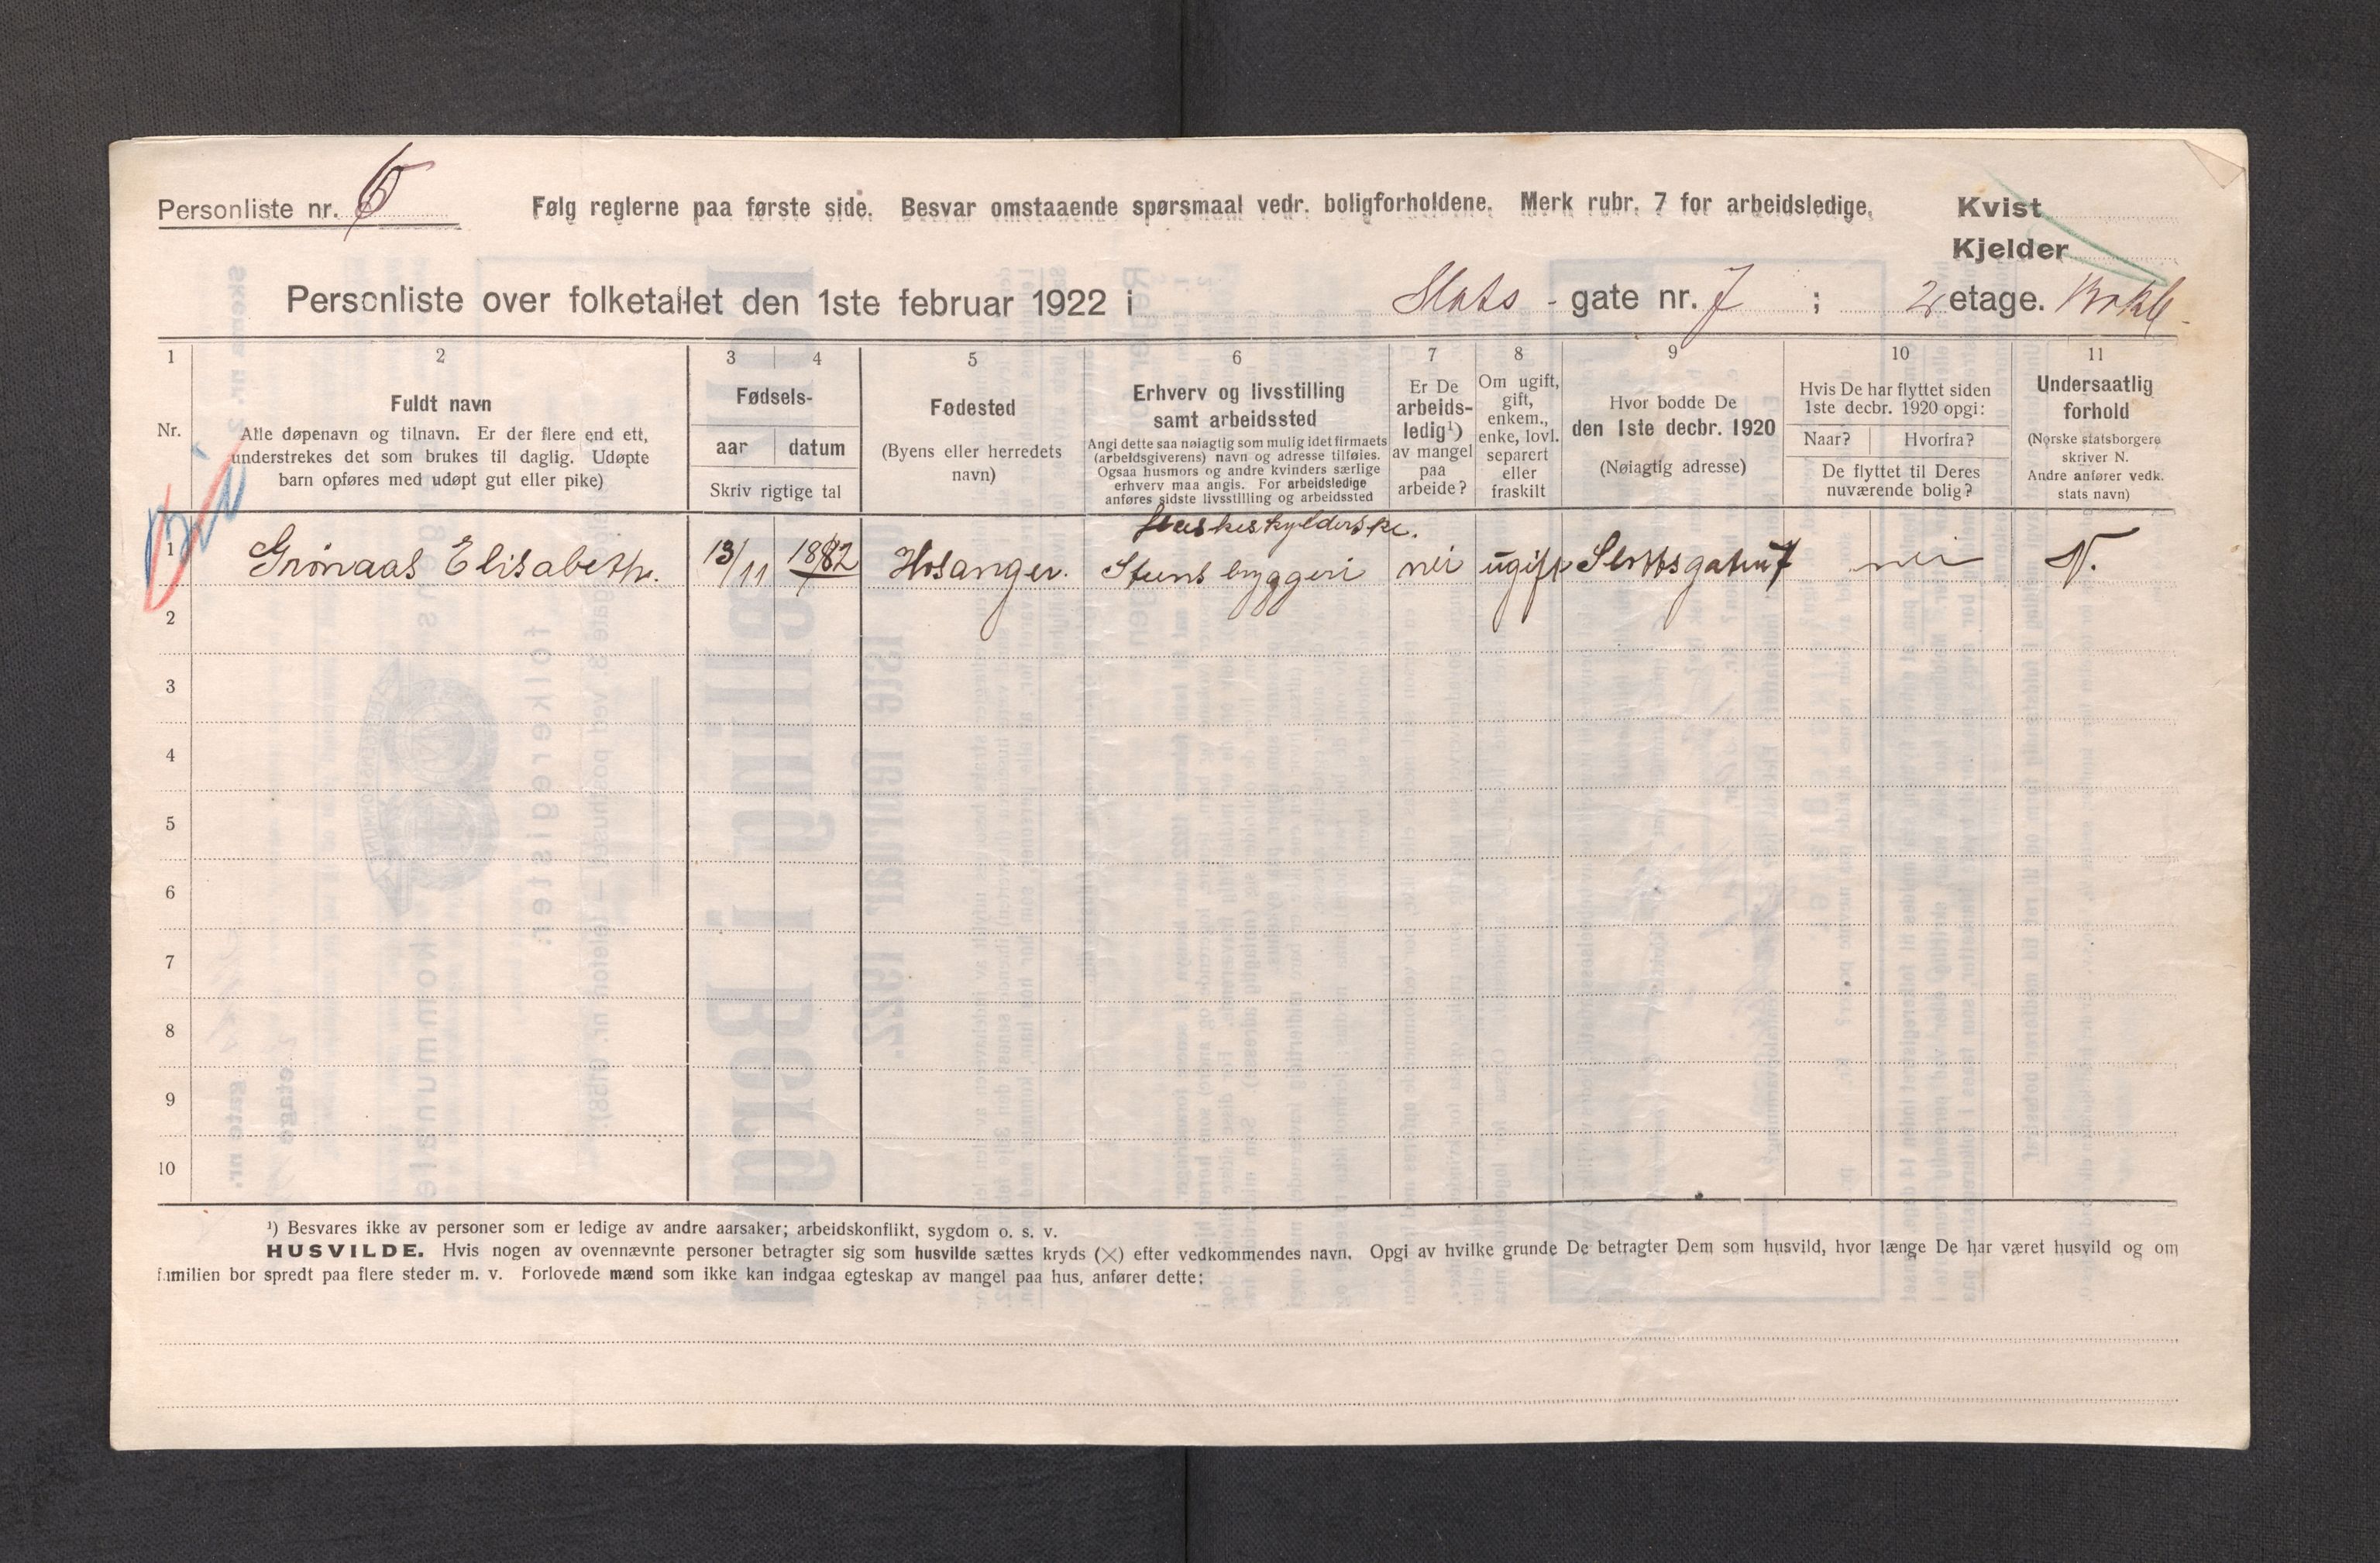 Personliste nr. 6
Følg reglerne paa første side. Besvar omstaaende spørsmaal vedr. boligforholdene. Merk rubr. 7 for arbeidsledige.
Kvist
Kjelder
Personliste over folketallet den 1ste februar 1922 i Slots - gate nr. 7 ; 2 etage.
1 2 3 4 5 6 7 8 9 10 11
Nr.
Fuldt navn
Alle døpenavn og tilnavn. Er der flere end ett,
understrekes det som brukes til daglig. Udøpte
barn opføres med udøpt gut eller pike)
Fødsels-
aar datum
Skriv rigtige tal
Fødested
(Byens eller herredets
navn)
Erhverv og livsstilling
samt arbeidssted
Angi dette saa nøiagtig som mulig idet firmaets
(arbeidsgiverens) navn og adresse tilføies.
Ogsaa husmors og andre kvinders særlige
erhverv maa angis. For arbeidsledige
anføres sidste livsstilling og arbeidssted
Er De
arbeids-
ledig¹)
av mangel
paa
arbeide?
Om ugift,
gift,
enkem.,
enke, lovl.
separert
eller
fraskilt
Hvor bodde De
den 1ste decbr. 1920
(Nøiagtig adresse)
Hvis De har flyttet siden
1ste decbr. 1920 opgi:
Naar? Hvorfra?
De flyttet til Deres
nuværende bolig?
Undersaatlig
forhold
(Norske statsborgere
skriver N.
Andre anfører vedk.
stats navn)
flaskeskylderske.
1 Grönaas Elisabeth. 13/11 1882 Hosanger. Stens bryggeri nei ugift Slottsgaten 7 nei N.
2
3
4
5
6
7
8
9
10
¹) Besvares ikke av personer som er ledige av andre aarsaker; arbeidskonflikt, sygdom o. s. v.
HUSVILDE. Hvis nogen av ovennævnte personer betragter sig som husvilde sættes kryds (×) efter vedkommendes navn. Opgi av hvilke grunde De betragter Dem som husvild, hvor længe De har været husvild og om
familien bor spredt paa flere steder m. v. Forlovede mænd som ikke kan indgaa egteskap av mangel paa hus, anfører dette: